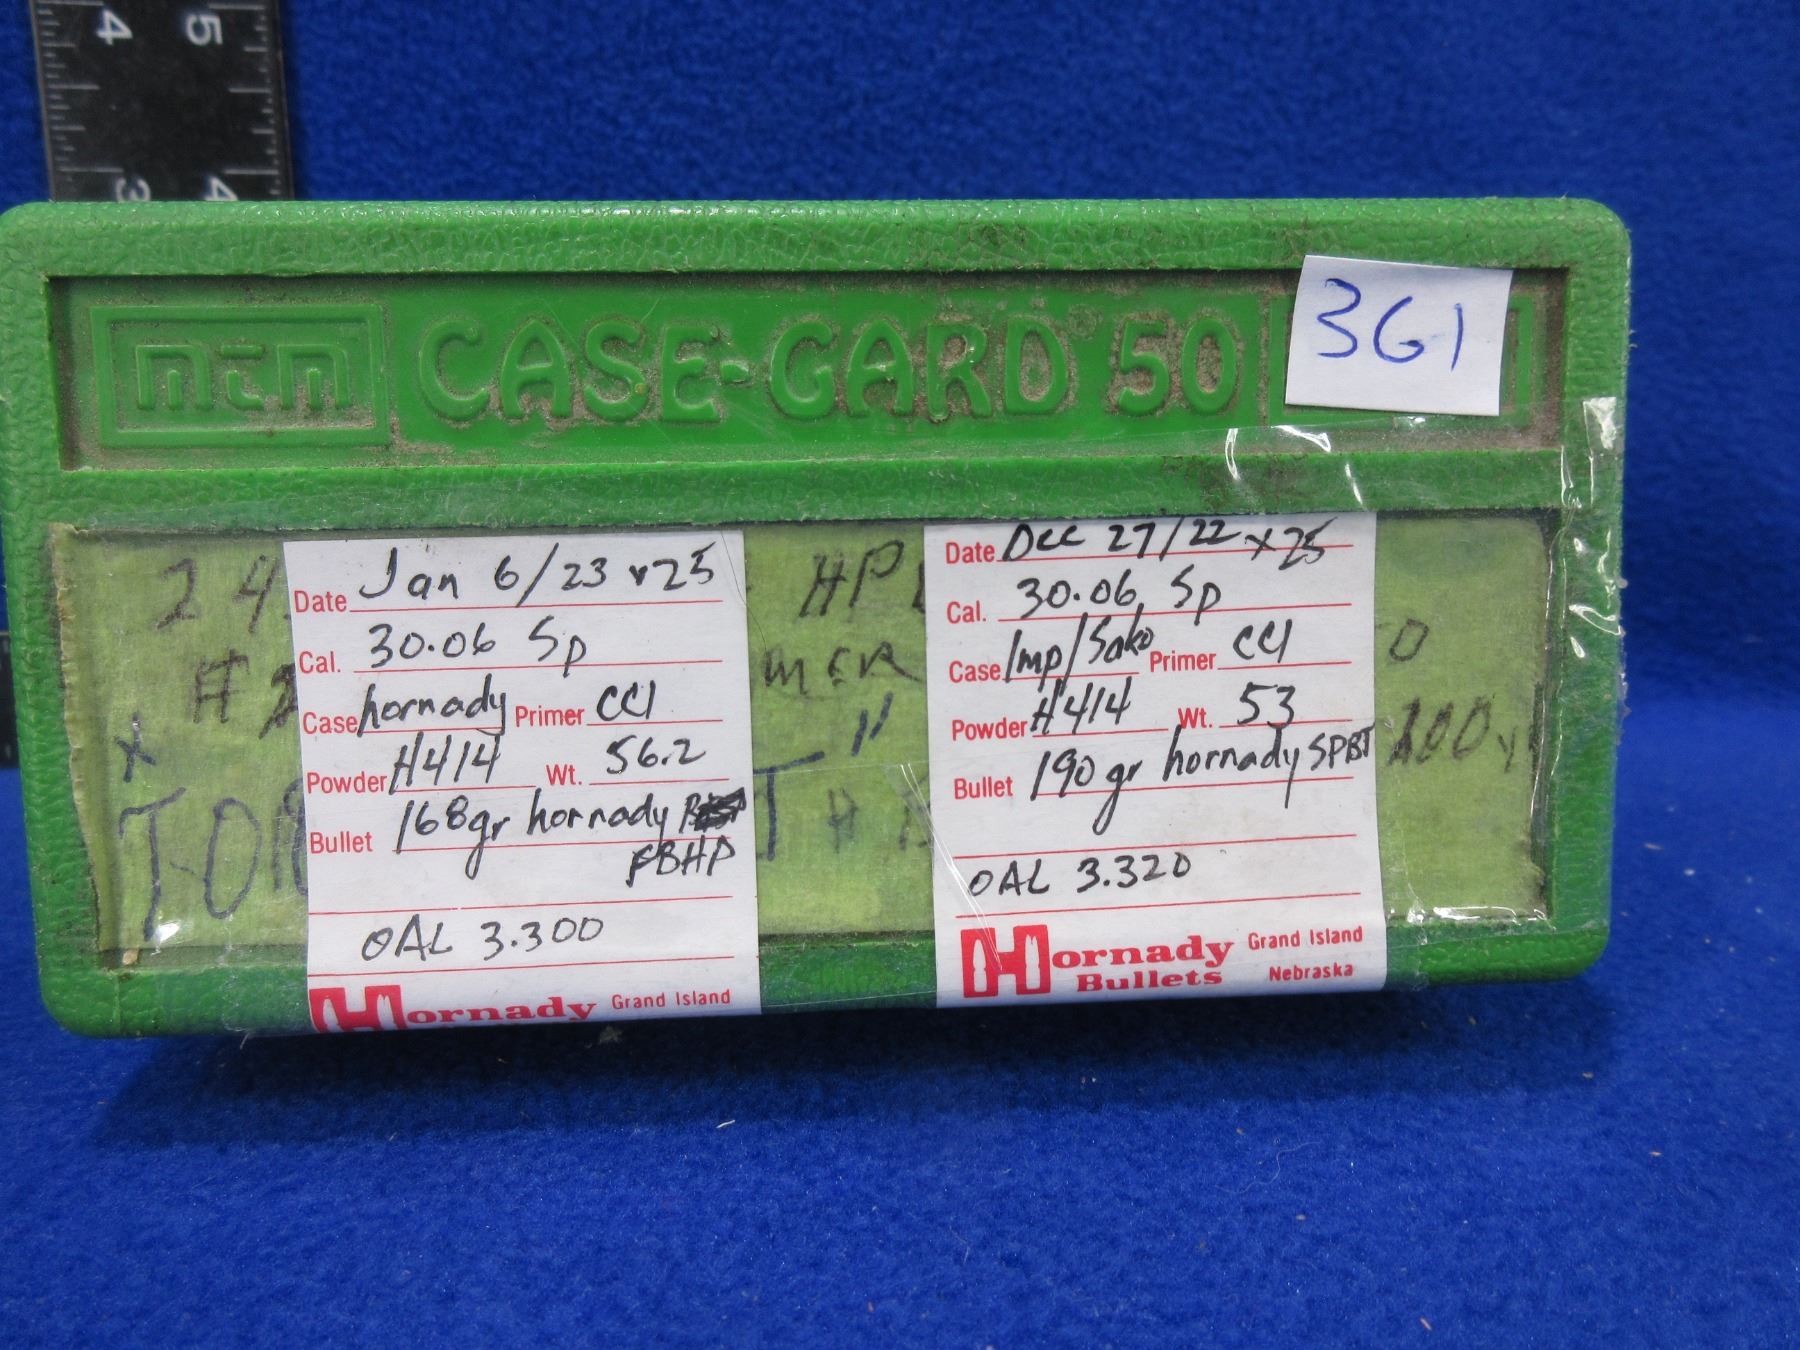 4 5
3 4
mtm CASE-GARD 50
361
Date Jan 6/23 x25
Cal. 30.06 Sp
Case hornady Primer CCI
Powder H414 Wt. 56.2
Bullet 168gr hornady
FBHP
OAL 3.300
Hornady Grand Island
Date Dec 27/22 x25
Cal. 30.06 Sp
Case Imp/Sako Primer CCI
Powder H414 Wt. 53
Bullet 190gr hornady SPBT
OAL 3.320
Hornady Grand Island
Bullets Nebraska